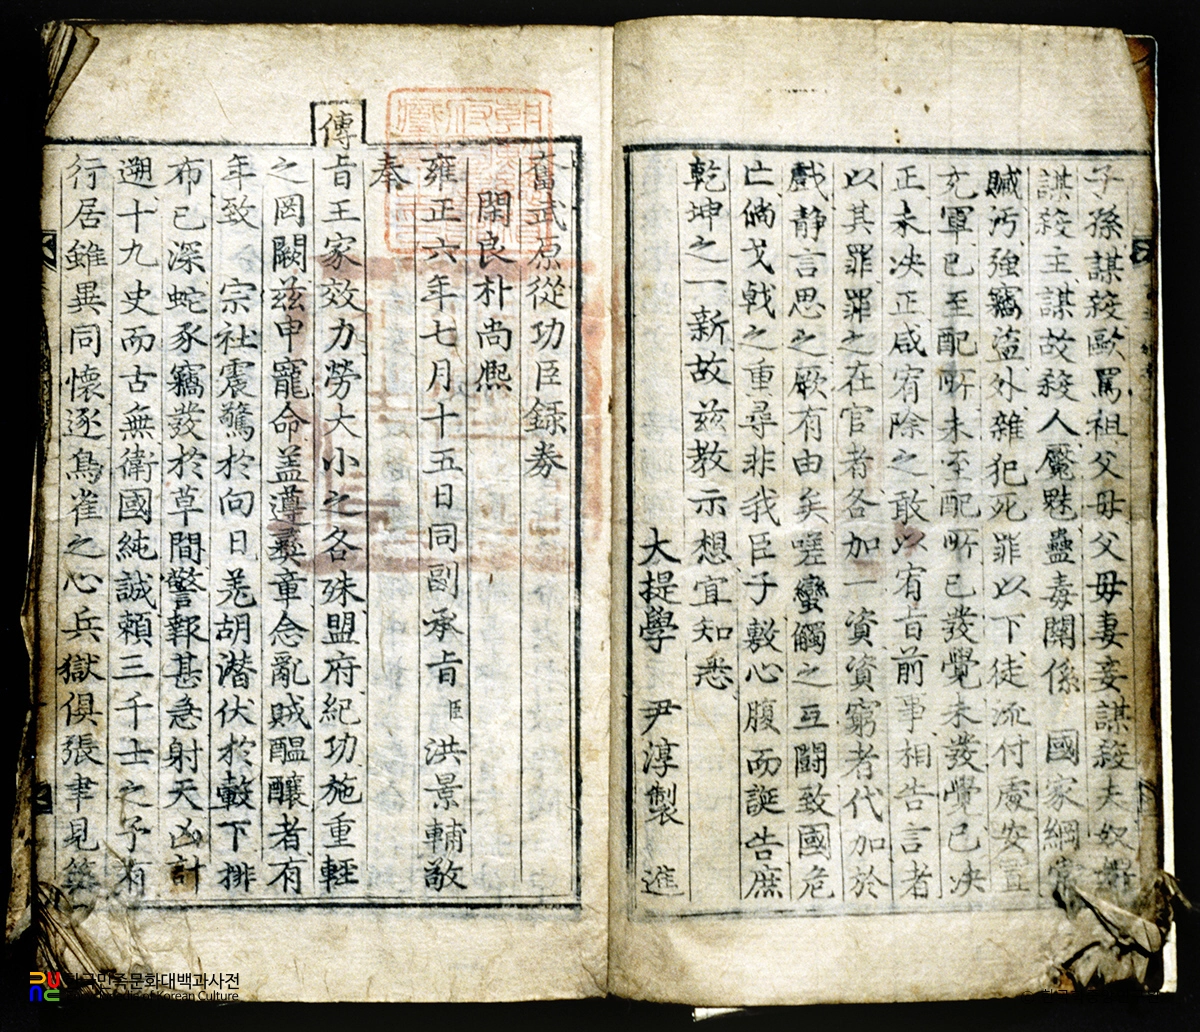 子孫謀殺歐罵祖父母父母妻妾謀殺夫奴婢
謀殺主謀故殺人魘魅蠱毒關係 國家綱常
贓汚強竊盗外雜犯死罪以下徒流付處安置
充軍已至配所未至配所已發覺未發覺已决
正未决正咸宥除之敢以宥旨前事相告言者
以其罪罪之在官者各加一資資窮者代加於
戲静言思之厥有由矣嗟蠻觸之互鬪致國危
亡倘戈戟之重尋非我臣子敷心腹而誕告庶
乾坤之一新故玆教示想宜知悉
大提學 尹淳製 進
奮武原從功臣錄券
閑良朴尚熈
雍正六年七月十五日同副承旨臣洪景輔敬
奉
傳旨王家效力勞大小之各殊盟府紀功施重輕
之罔闕玆申寵命盖遵彛章念亂賊醞釀者有
年致 宗社震驚於向日羌胡潜伏於轂下排
布已深蛇豕竊發於草間警報甚急射天凶計
遡十九史而古無衛國純誠賴三千士之予有
行居雖異同懷逐鳥雀之心兵獄俱張聿見築
한국민족문화대백과사전
of Korean Culture